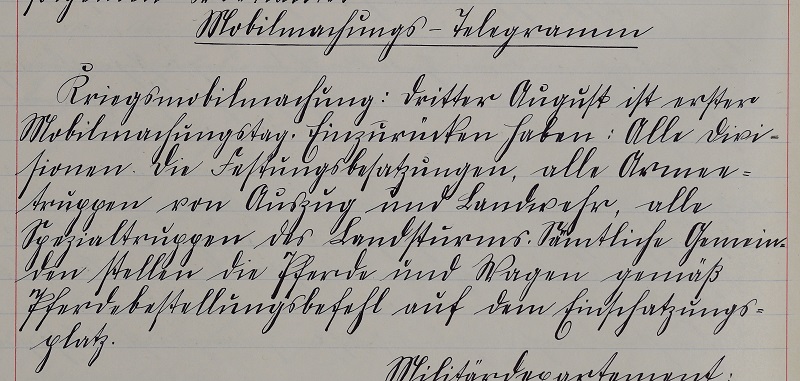 Mobilmachungs-Telegramm
Kriegsmobilmachung: Dritter August ist erster
Mobilmachungstag. Einzurücken haben: Alle Divi-
sionen. Die Festungsbesatzungen, alle Armee-
truppen von Auszug und Landwehr, alle
Spezialtruppen des Landsturms. Sämtliche Gemein-
den stellen die Pferde und Wagen gemäß
Pferdebestellungsbefehl auf dem Einschatzungs-
platz.
Militärdepartement: